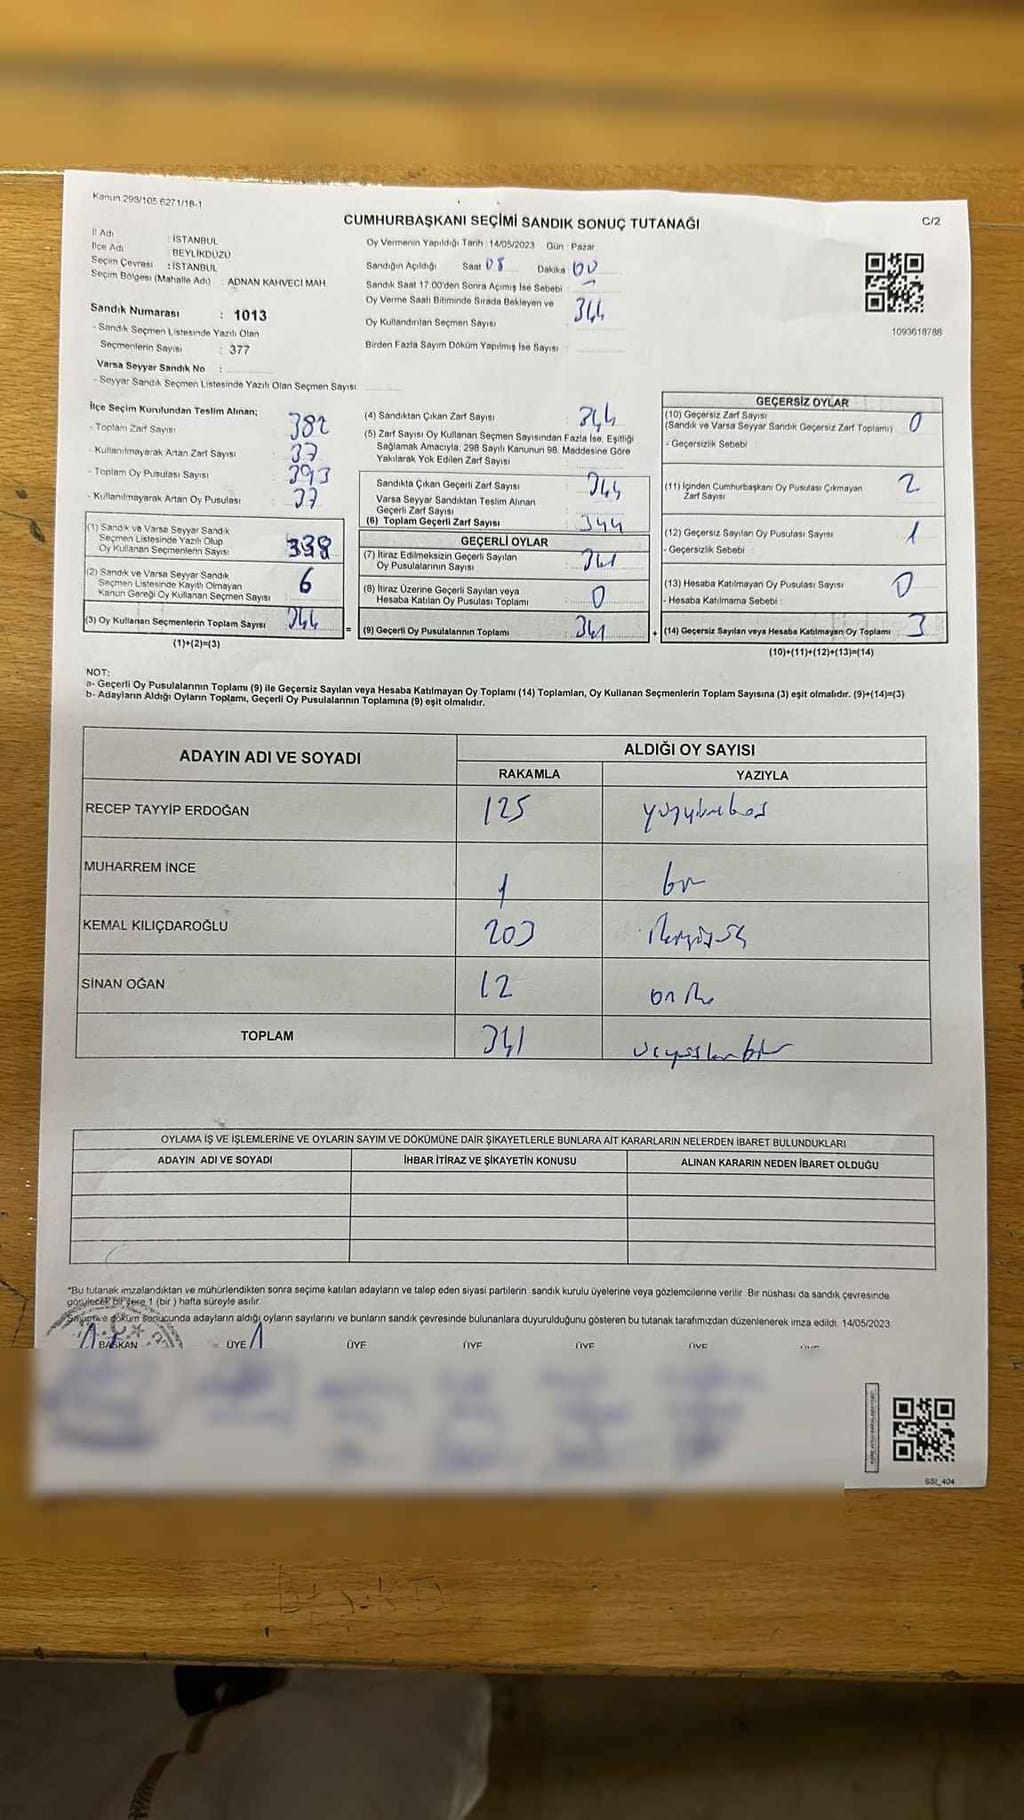 Kanun 298/105.6271/18-1
CUMHURBAŞKANI SEÇİMİ SANDIK SONUÇ TUTANAĞI
C/2
İl Adı : İSTANBUL
İlçe Adı BEYLİKDÜZÜ
Seçim Çevresi : İSTANBUL
Seçim Bölgesi (Mahalle Adı) : ADNAN KAHVECİ MAH
Oy Vermenin Yapıldığı Tarih : 14/05/2023 Gün : Pazar
Sandığın Açıldığı Saat 08 Dakika 00
Sandık Saat 17:00'den Sonra Açımış İse Sebebi -
Oy Verme Saati Bitiminde Sırada Bekleyen ve
Oy Kullandırılan Seçmen Sayısı : 344
Birden Fazla Sayım Döküm Yapılmış İse Sayısı :
1093618786
Sandık Numarası : 1013
- Sandık Seçmen Listesinde Yazılı Olan
Seçmenlerin Sayısı : 377
Varsa Seyyar Sandık No :
- Seyyar Sandık Seçmen Listesinde Yazılı Olan Seçmen Sayısı
İlçe Seçim Kurulundan Teslim Alınan;
- Toplam Zarf Sayısı : 382
- Kullanılmayarak Artan Zarf Sayısı : 37
- Toplam Oy Pusulası Sayısı : 393
- Kullanılmayarak Artan Oy Pusulası : 37
(1) Sandık ve Varsa Seyyar Sandık
Seçmen Listesinde Yazılı Olup
Oy Kullanan Seçmenlerin Sayısı : 338
(2) Sandık ve Varsa Seyyar Sandık
Seçmen Listesinde Kayıtlı Olmayan
Kanun Gereği Oy Kullanan Seçmen Sayısı : 6
(3) Oy Kullanan Seçmenlerin Toplam Sayısı : 344
(1)+(2)=(3)
(4) Sandıktan Çıkan Zarf Sayısı : 344
(5) Zarf Sayısı Oy Kullanan Seçmen Sayısından Fazla İse, Eşitliği
Sağlamak Amacıyla, 298 Sayılı Kanunun 98. Maddesine Göre
Yakılarak Yok Edilen Zarf Sayısı :
Sandıkta Çıkan Geçerli Zarf Sayısı : 344
Varsa Seyyar Sandıktan Teslim Alınan
Geçerli Zarf Sayısı :
(6) Toplam Geçerli Zarf Sayısı : 344
GEÇERLİ OYLAR
(7) İtiraz Edilmeksizin Geçerli Sayılan
Oy Pusulalarının Sayısı : 341
(8) İtiraz Üzerine Geçerli Sayılan veya
Hesaba Katılan Oy Pusulası Toplamı : 0
= (9) Geçerli Oy Pusulalarının Toplamı : 341 +
GEÇERSİZ OYLAR
(10) Geçersiz Zarf Sayısı
(Sandık ve Varsa Seyyar Sandık Geçersiz Zarf Toplamı) : 0
- Geçersizlik Sebebi :
(11) İçinden Cumhurbaşkanı Oy Pusulası Çıkmayan
Zarf Sayısı 2
(12) Geçersiz Sayılan Oy Pusulası Sayısı : 1
- Geçersizlik Sebebi :
(13) Hesaba Katılmayan Oy Pusulası Sayısı : 0
- Hesaba Katılmama Sebebi :
(14) Geçersiz Sayılan veya Hesaba Katılmayan Oy Toplamı : 3
(10)+(11)+(12)+(13)=(14)
NOT:
a- Geçerli Oy Pusulalarının Toplamı (9) ile Geçersiz Sayılan veya Hesaba Katılmayan Oy Toplamı (14) Toplamları, Oy Kullanan Seçmenlerin Toplam Sayısına (3) eşit olmalıdır. (9)+(14)=(3)
b- Adayların Aldığı Oyların Toplamı, Geçerli Oy Pusulalarının Toplamına (9) eşit olmalıdır.
ADAYIN ADI VE SOYADI
ALDIĞI OY SAYISI
RAKAMLA YAZIYLA
RECEP TAYYİP ERDOĞAN 125 yüzyirmibeş
MUHARREM İNCE 1 bir
KEMAL KILIÇDAROĞLU 203 ikiyüzüç
SİNAN OĞAN 12 on iki
TOPLAM 341 üçyüzkırkbir
OYLAMA İŞ VE İŞLEMLERİNE VE OYLARIN SAYIM VE DÖKÜMÜNE DAİR ŞİKAYETLERLE BUNLARA AİT KARARLARIN NELERDEN İBARET BULUNDUKLARI
ADAYIN ADI VE SOYADI İHBAR İTİRAZ VE ŞİKAYETİN KONUSU ALINAN KARARIN NEDEN İBARET OLDUĞU
*Bu tutanak imzalandıktan ve mühürlendikten sonra seçime katılan adayların ve talep eden siyasi partilerin sandık kurulu üyelerine veya gözlemcilerine verilir. Bir nüshası da sandık çevresinde
görülecek bir yere 1 (bir ) hafta süreyle asılır.
Sayım ve döküm sonucunda adayların aldığı oyların sayılarını ve bunların sandık çevresinde bulunanlara duyurulduğunu gösteren bu tutanak tarafımızdan düzenlenerek imza edildi. 14/05/2023
BAŞKAN ÜYE ÜYE ÜYE ÜYE ÜYE ÜYE
SSİ_404